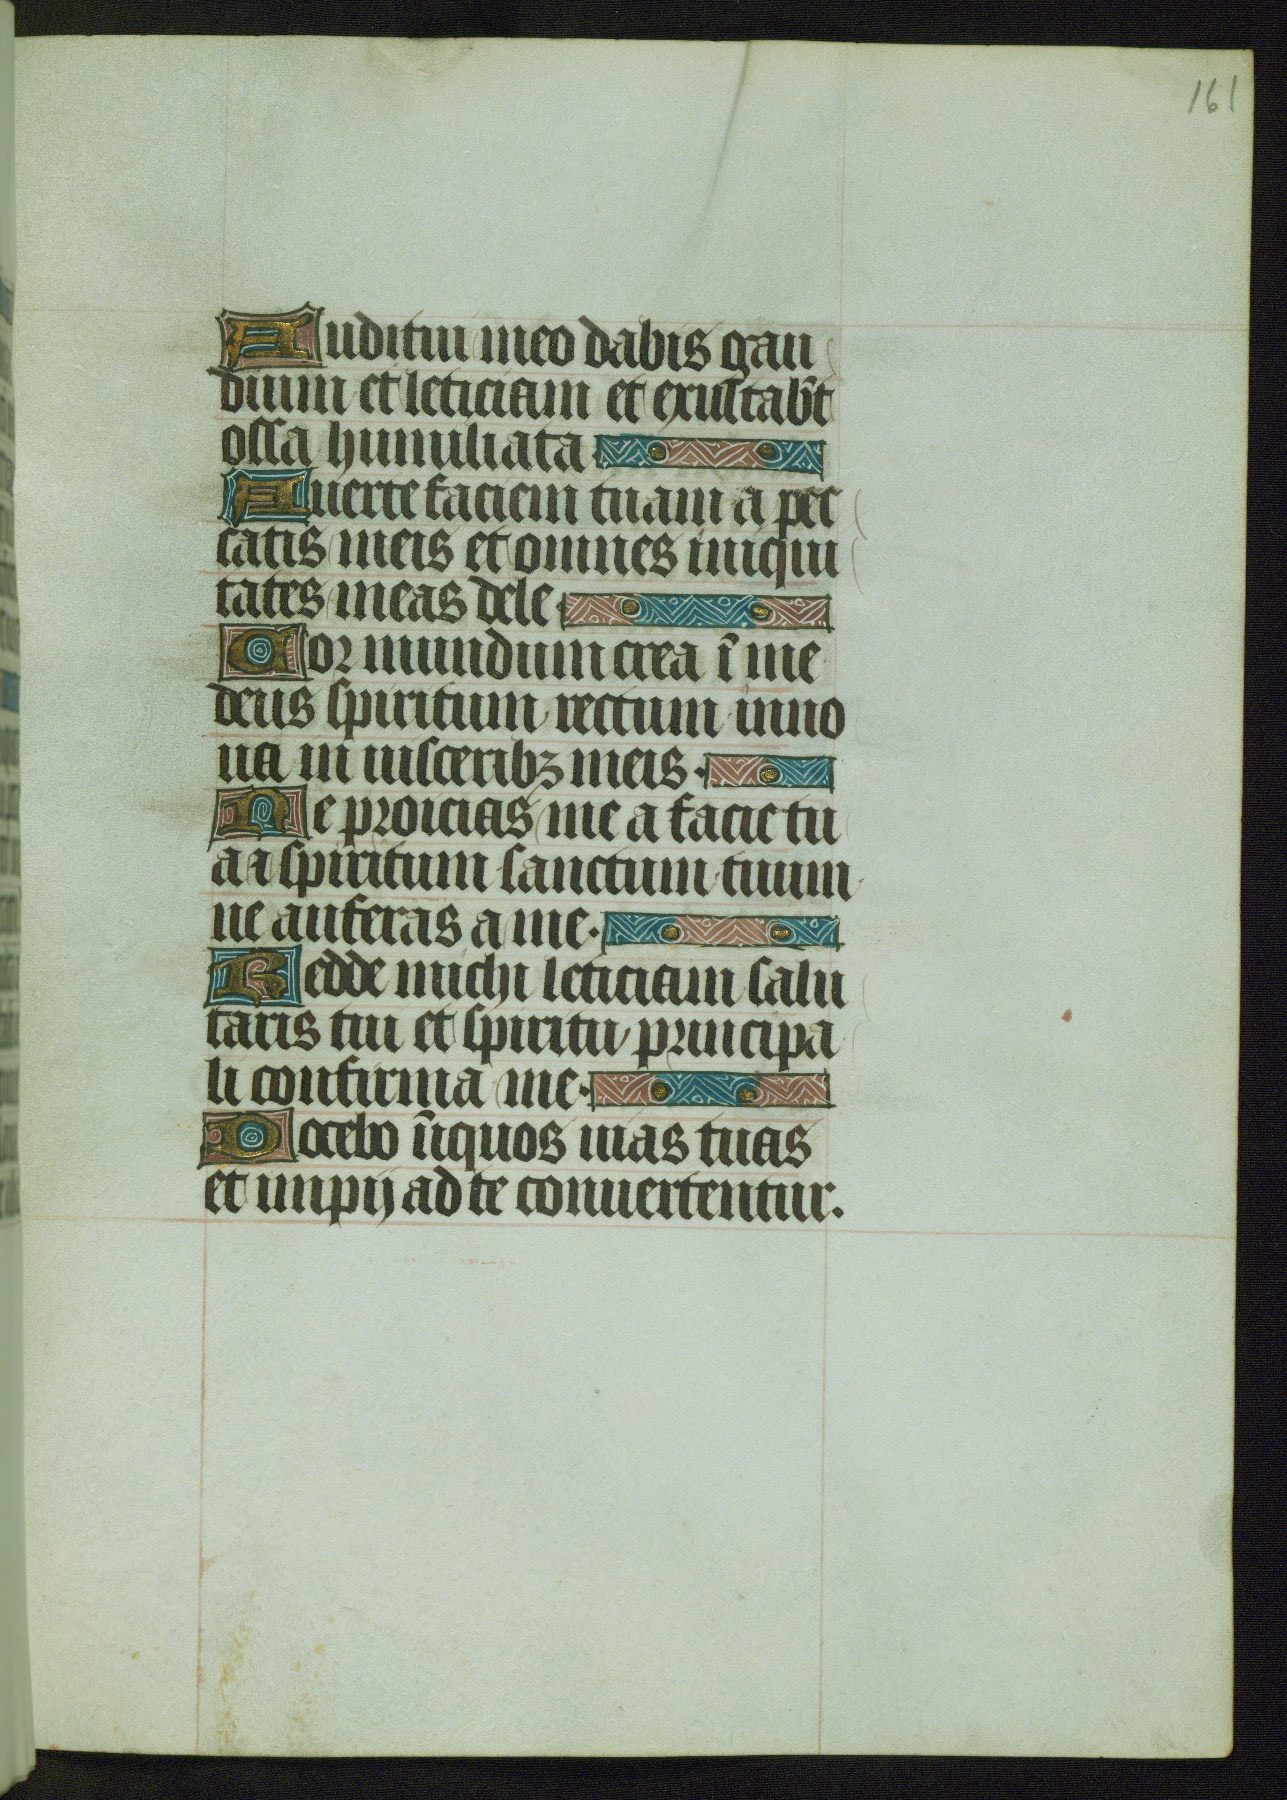 161
Auditui meo dabis gau
dium et leticiam et exultab̄t
ossa humiliata
Auerte faciem tuam a pec
catis meis et omnes iniqui
tates meas dele
Cor mundum crea ī me
deus spiritum rectum inno
ua in uisceribꝫ meis ·
Ne proicias me a facie tu
a ⁊ spiritum sanctum tuum
ne auferas a me ·
Redde michi leticiam salu
taris tui et spiritu principa
li confirma me ·
Docebo īiquos uias tuas
et impij ad te conuertentur.